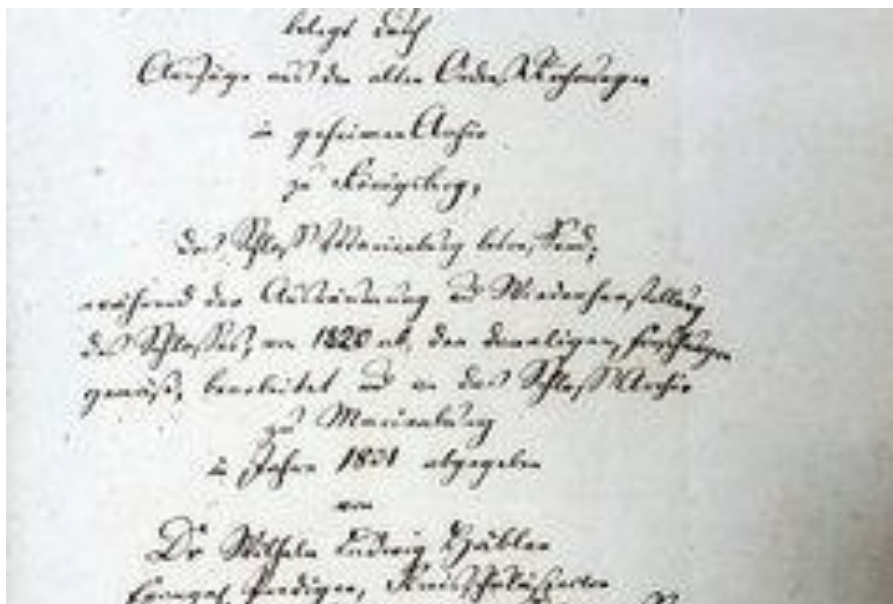 belegt durch
Auszüge aus den alten Ordens Rechnungen
im geheimen Archiv
zu Königsberg,
das Schloß Marienburg betreffend,
während der Ausräumung und Wiederherstellung
des Schlosses, von 1820 ab, den damaligen Forschungen
gemäß, bearbeitet und an das Schloß Archiv
zu Marienburg
im Jahre abgegeben
von
Dr Wilhelm Ludwig Häbler
Evangel. Prediger,